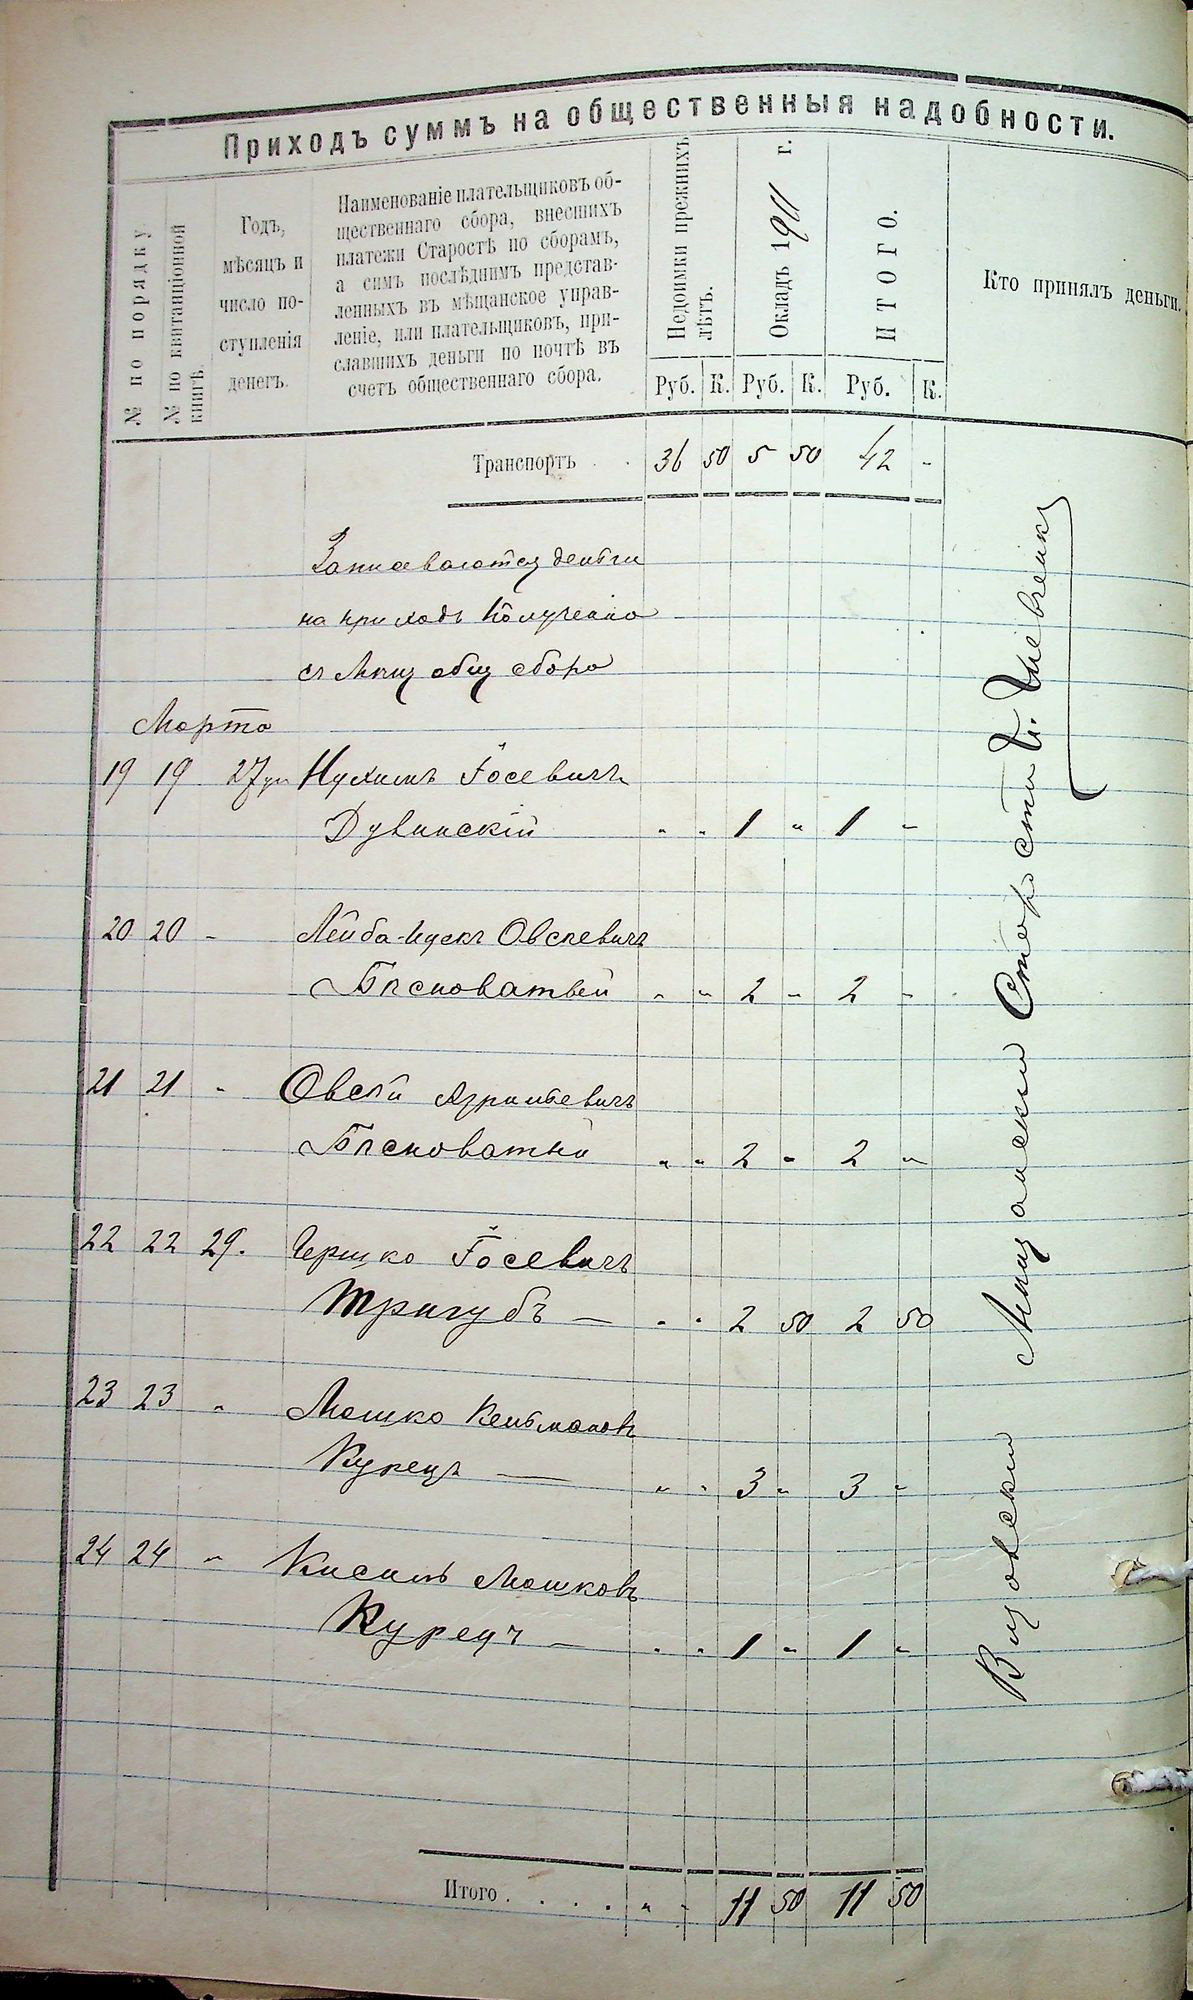 Приходъ суммъ на общественныя надобности.
№ по порядку.
№ по квитанціонной
книгѣ.
Годъ,
мѣсяцъ и
число по-
ступленія
денегъ.
Наименованіе плательщиковъ об-
щественнаго сбора, внесшихъ
платежи Старостѣ по сборамъ,
а симъ послѣднимъ представ-
ленныхъ въ мѣщанское управ-
леніе, или плательщиковъ, при-
славшихъ деньги по почтѣ въ
счетъ общественнаго сбора.
Недоимки прежнихъ
лѣтъ.
Окладъ 1911 г.
ИТОГО.
Кто принялъ деньги.
Руб. К. Руб. К. Руб. К.
Транспортъ . . 36 50 5 50 42 -
Записеваются деньги
на приходъ Полученно
съ Мѣщ общ сбора
Марта
19 19 27 Нухимъ Іосевичъ
Дувинскій " " 1 " 1 "
20 20 " Лейба-Ицекъ Овсѣевичъ
Бѣсноватый " " 2 " 2 "
21 21 " Овсѣй Азриліевичъ
Бѣсноватый " " 2 " 2 "
22 22 29. Гершко Іосевичъ
Тригубъ — " " 2 50 2 50
23 23 " Мошко Кельмановъ
Курецъ — " " 3 " 3 "
24 24 " Кисиль Мошковъ
Курецъ — " " 1 " 1 "
Мѣщанскій Староста
Итого . . . . " " 11 50 11 50